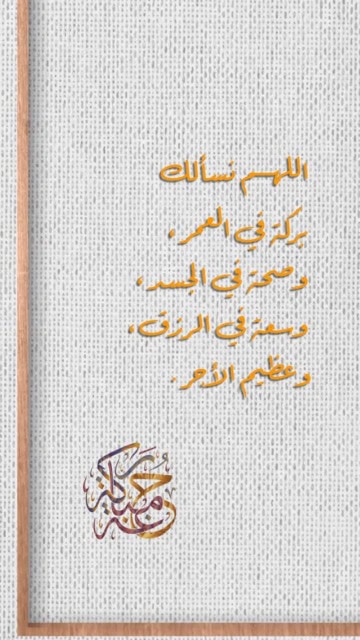 اللهم نسألك
بركة في العمر،
وصحة في الجسد،
وسعة في الرزق،
وعظيم الأجر.
جمعة مباركة